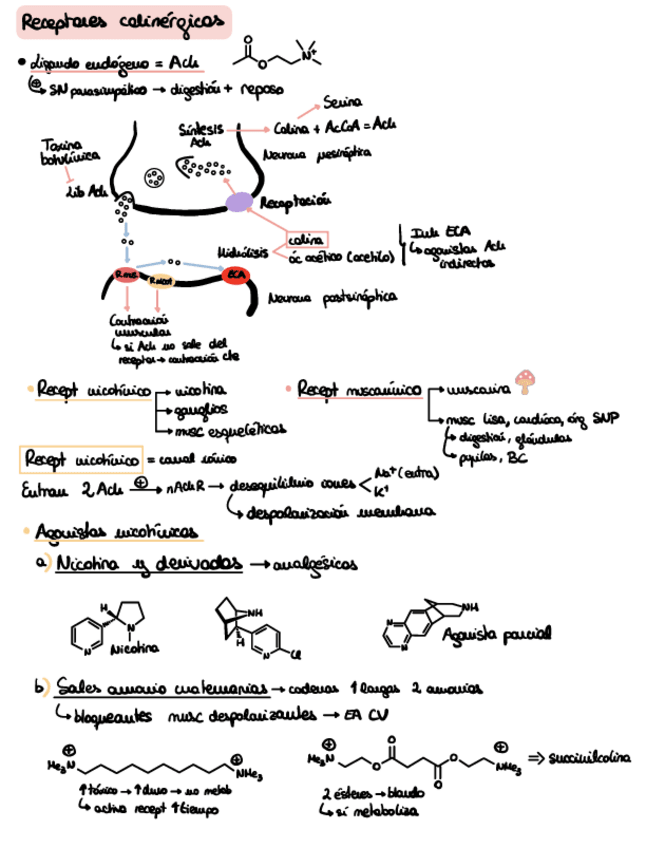 Receptores colinérgicos
• Ligando endógeno = Ach
⊕ SN parasimpático → digestión + reposo
N⁺
O
O
Serina
Síntesis Ach → Colina + AcCoA = Ach
Toxina botulínica
Neurona presináptica
Lib Ach
Recaptación
Hidrólisis
colina
ác acético (acetilo)
Inh ECA
↳ agonistas Ach indirectos
R mus
R nicot
ECA
Neurona postsináptica
Contracción muscular
↳ si Ach no sale del receptor → contracción cte
• Recept nicotínico → nicotina
→ ganglios
→ musc esqueléticos
• Recept muscarínico → muscarina
→ musc lisa, cardíaca, órg SNP
↳ digestión, glándulas
↳ pupilas, BC
Recept nicotínico = canal iónico
Entran 2 Ach ⊕→ nAchR → desequilibrio iones < Na⁺ (entra)
K⁺
↳ despolarización membrana
• Agonistas nicotínicos
a) Nicotina y derivados → analgésicos
H
N
N
Nicotina
NH
H
N
Cl
N
N
NH
Agonista parcial
b) Sales amonio cuaternarias → cadenas largas 2 amonios
↳ bloqueantes musc despolarizantes → EA CV
⊕
Me₃N
⊕
NMe₃
↑ tóxico → ↑ duro → no metab
↳ activa recept ↑ tiempo
⊕
Me₃N
O
O
O
O
⊕
NMe₃
⇒ succinilcolina
2 ésteres → blando
↳ sí metaboliza